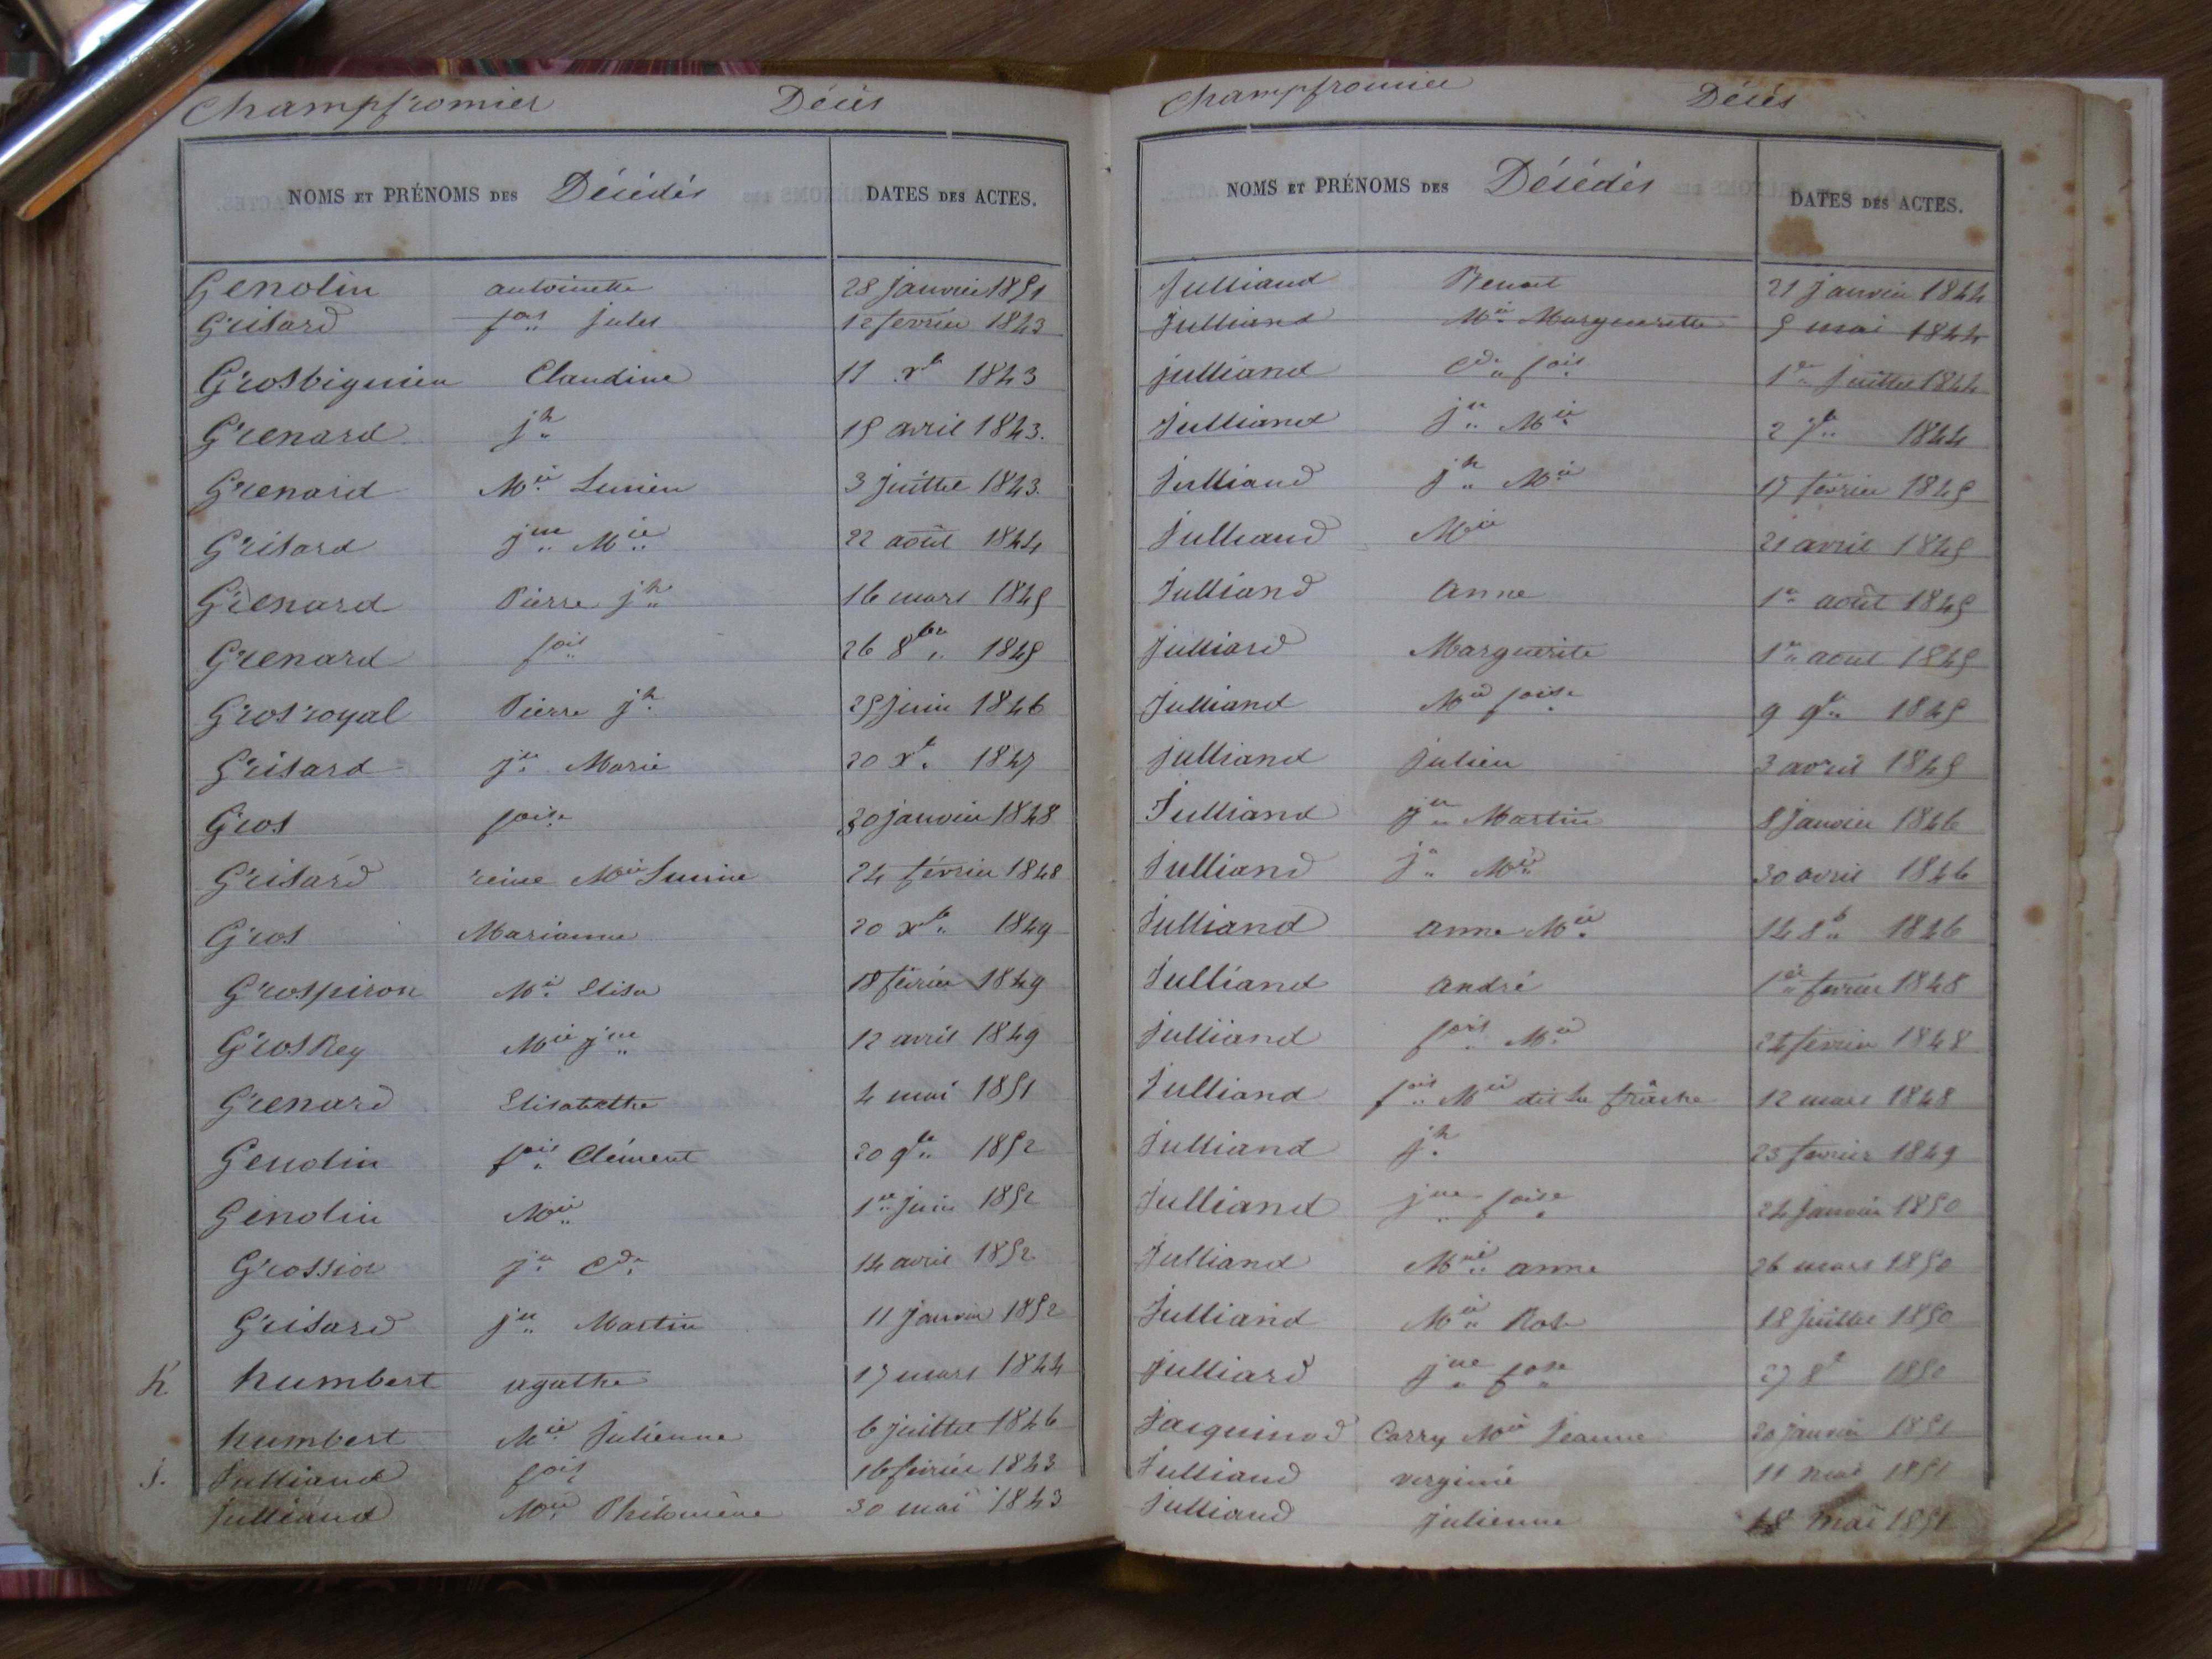 Champfromier Décès
NOMS ET PRÉNOMS DES Décédés DATES DES ACTES.
Genolin antoinette 28 janvier 1851
Grisard fois jules 12 fevrier 1843
Grosbiguien Claudine 11 xbre 1843
Grenard jh 15 avril 1843.
Grenard Mie Lucien 3 juillet 1843.
Grisard jne Mie 22 août 1844
Grenard Pierre jh 16 mars 1845
Grenard fois 26 8bre 1845
Grosroyal Pierre jh 25 juin 1846
Grisard jne Marie 20 xbre 1847
Gros foise 30 janvier 1848
Grisard reine Mie Lucine 24 février 1848
Gros Marianne 20 xbre 1849
Grospiron Mie Elisa 18 février 1849
GrosRey Mie jne 12 avril 1849
Grenard Elisabethe 4 mai 1851
Genolin fois Clément 20 9bre 1852
Genolin Mie 1er juin 1852
Grossiord jn Cde 14 avril 1852
Grisard jn Martin 11 janvier 1852
h humbert agathe 17 mars 1844
humbert Mie Julienne 6 juillet 1846
j. Julliand fois 16 février 1843
Julliand Mie Philomène 30 mai 1843
Champfromier Décés
NOMS ET PRÉNOMS DES Décédés DATES DES ACTES.
Julliand Benoit 21 janvier 1844
Julliand Mie Marguerette 5 mai 1844
julliand Cde fois 1er juillet 1844
Julliand jn Mie 2 1844
Julliand jh Mie 17 février 1845
Julliand Mie 21 avril 1845
Julliand Anne 1er août 1845
Julliard Marguerite 1er aout 1845
Julliand Mie foise 9 9bre 1845
julliand Julien 3 avril 1845
Julliand jn Martin 8 janvier 1846
Julliand jn Mie 30 avril 1846
Julliand Anne Mie 14 8b 1846
Julliand André 1er fevrier 1848
Julliand fois Mie 24 fevrier 1848
Julliand fois Mie dit la frâche 12 mars 1848
Julliand jh 23 fevrier 1849
Julliand jne foise 24 janvier 1850
Julliand Mie anne 26 mars 1850
Julliand Mie Rose 18 juillet 1850
Julliard jne foise 27 8b 1850
Jacquinod Carry Mie Jeanne 20 janvier 1851
Julliand virginie 11 mai 1851
Julliand Julienne 18 mai 1851